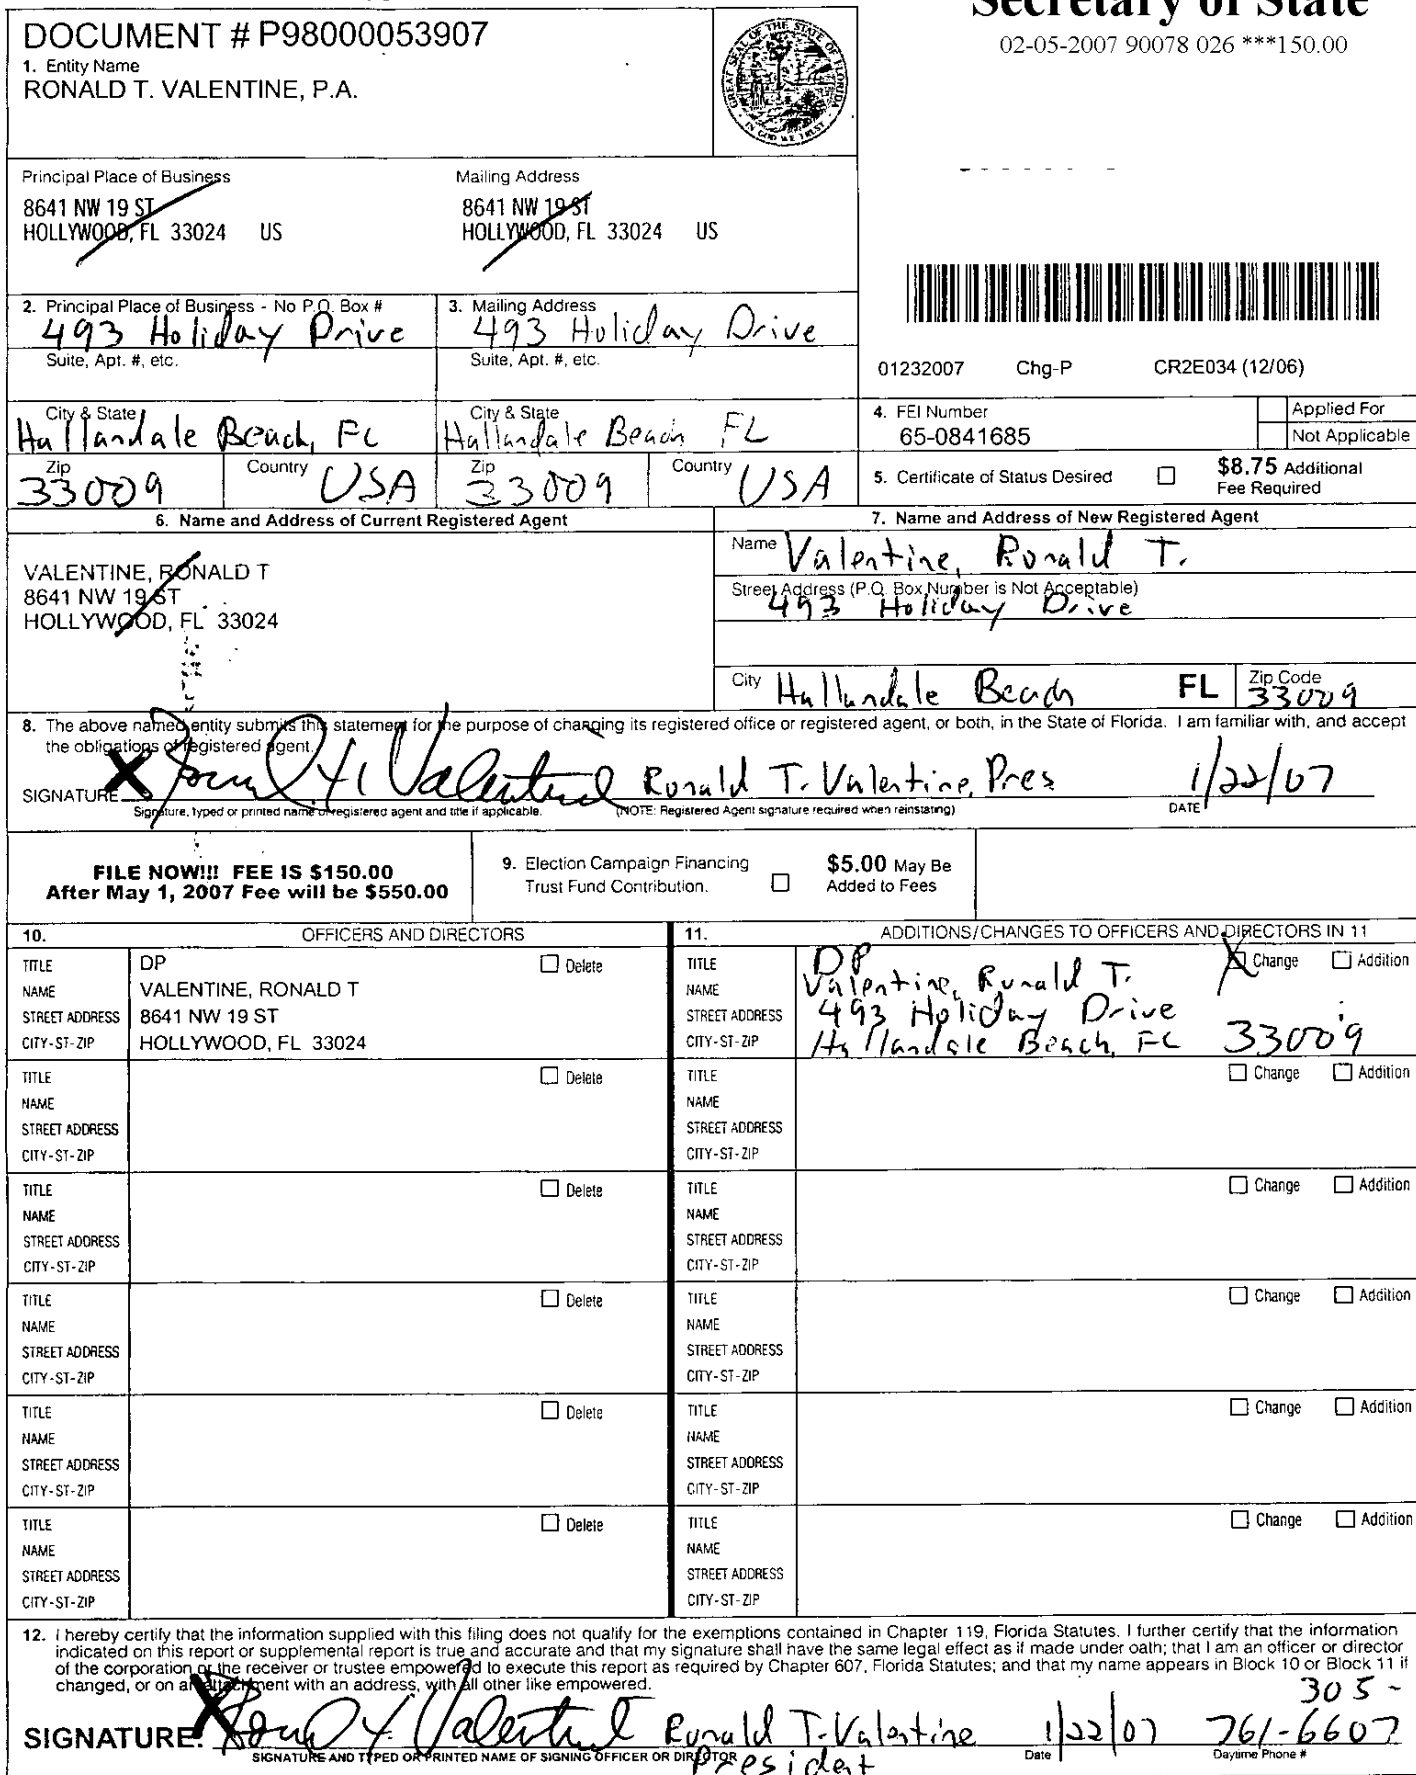 Secretary of State
02-05-2007 90078 026 ***150.00
DOCUMENT # P98000053907
1. Entity Name
RONALD T. VALENTINE, P.A.
GREAT SEAL OF THE STATE OF FLORIDA
IN GOD WE TRUST
Principal Place of Business
8641 NW 19 ST
HOLLYWOOD, FL 33024 US
Mailing Address
8641 NW 19 ST
HOLLYWOOD, FL 33024 US
2. Principal Place of Business - No P.O. Box #
493 Holiday Drive
Suite, Apt. #, etc.
City & State
Hallandale Beach, FL
Zip
33009
Country
USA
3. Mailing Address
493 Holiday Drive
Suite, Apt. #, etc.
City & State
Hallandale Beach FL
Zip
33009
Country
USA
01232007 Chg-P CR2E034 (12/06)
4. FEI Number
65-0841685
Applied For
Not Applicable
5. Certificate of Status Desired
$8.75 Additional
Fee Required
6. Name and Address of Current Registered Agent
VALENTINE, RONALD T
8641 NW 19 ST
HOLLYWOOD, FL 33024
7. Name and Address of New Registered Agent
Name Valentine, Ronald T.
Street Address (P.O. Box Number is Not Acceptable)
493 Holiday Drive
City Hallandale Beach FL Zip Code
33009
8. The above named entity submits this statement for the purpose of changing its registered office or registered agent, or both, in the State of Florida. I am familiar with, and accept
the obligations of registered agent.
SIGNATURE X Ronald T. Valentine Ronald T. Valentine, Pres 1/22/07
Signature, typed or printed name of registered agent and title if applicable. (NOTE: Registered Agent signature required when reinstating) DATE
FILE NOW!!! FEE IS $150.00
After May 1, 2007 Fee will be $550.00
9. Election Campaign Financing
Trust Fund Contribution.
$5.00 May Be
Added to Fees
10. OFFICERS AND DIRECTORS
TITLE DP Delete
NAME VALENTINE, RONALD T
STREET ADDRESS 8641 NW 19 ST
CITY-ST-ZIP HOLLYWOOD, FL 33024
TITLE Delete
NAME
STREET ADDRESS
CITY-ST-ZIP
TITLE Delete
NAME
STREET ADDRESS
CITY-ST-ZIP
TITLE Delete
NAME
STREET ADDRESS
CITY-ST-ZIP
TITLE Delete
NAME
STREET ADDRESS
CITY-ST-ZIP
TITLE Delete
NAME
STREET ADDRESS
CITY-ST-ZIP
11. ADDITIONS/CHANGES TO OFFICERS AND DIRECTORS IN 11
TITLE DP X Change Addition
NAME Valentine, Ronald T.
STREET ADDRESS 493 Holiday Drive
CITY-ST-ZIP Hallandale Beach, FL 33009
TITLE Change Addition
NAME
STREET ADDRESS
CITY-ST-ZIP
TITLE Change Addition
NAME
STREET ADDRESS
CITY-ST-ZIP
TITLE Change Addition
NAME
STREET ADDRESS
CITY-ST-ZIP
TITLE Change Addition
NAME
STREET ADDRESS
CITY-ST-ZIP
TITLE Change Addition
NAME
STREET ADDRESS
CITY-ST-ZIP
12. I hereby certify that the information supplied with this filing does not qualify for the exemptions contained in Chapter 119, Florida Statutes. I further certify that the information
indicated on this report or supplemental report is true and accurate and that my signature shall have the same legal effect as if made under oath; that I am an officer or director
of the corporation or the receiver or trustee empowered to execute this report as required by Chapter 607, Florida Statutes; and that my name appears in Block 10 or Block 11 if
changed, or on an attachment with an address, with all other like empowered.
305-
SIGNATURE: X Ronald T. Valentine Ronald T. Valentine 1/22/07 761-6607
SIGNATURE AND TYPED OR PRINTED NAME OF SIGNING OFFICER OR DIRECTOR Date Daytime Phone #
President